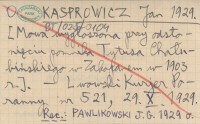 KASPROWICZ Jan 1929.
[Mowa wygłoszona przy odsło-
nięciu pomnika Tytusa Chału-
bińskiego w Zakopanem w 1903
r.]. — Lwowski Kurjer Po-
ranny nr 521, 29. X 1929.
Rec.: PAWLIKOWSKI J. G. 1929